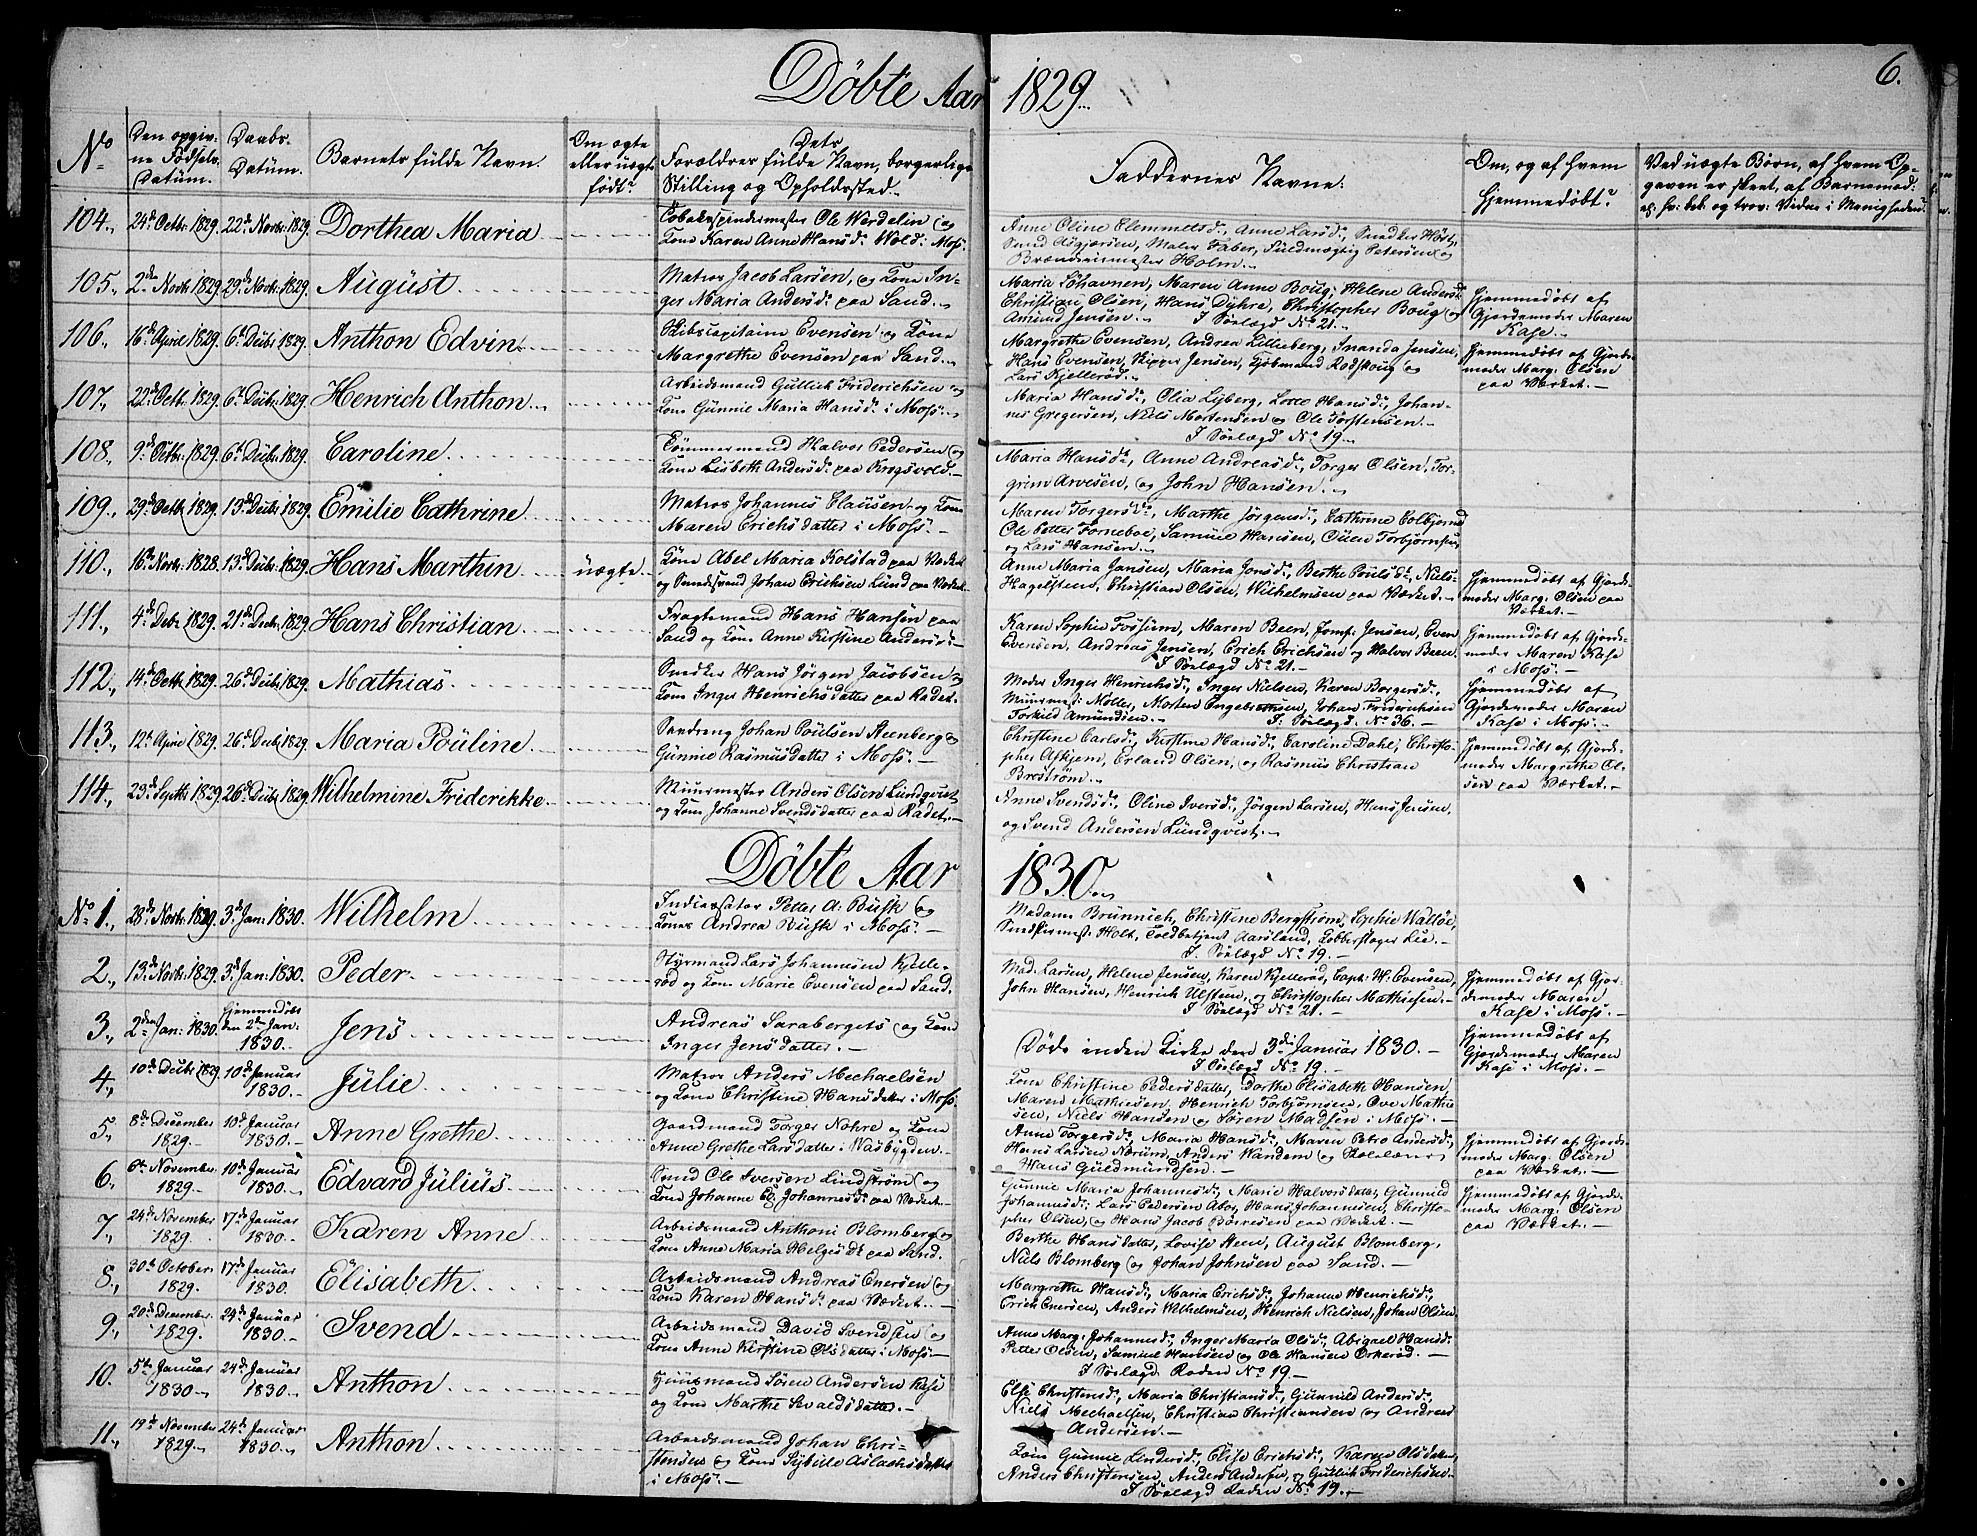 Döbte Aar 1829.
6.
No
Den opgivne Födsels Datüm.
Daabs Datüm.
Barnets fülde Navn.
Om ægte eller uægte födt?
Dets Forældres fülde Navn, borgerlige Stilling og Opholdssted.
Faddernes Navne.
Om, og af hvem hjemmedöbt?
104., 24de Octbr: 1829. 22de Novbr: 1829. Dorthea Maria
Tobakspindermester Ole Werdelin og
Kone Karen Anne Hansd: Wold: Moss.
Anne Oline Clemmetsd:, Anne Larsd:, Snedker Höst,
Smed Asgjorsen, Maler Faber, Füldmægtig Petersen og
Brænderimester Holm.
105., 2de Novb: 1829. 29de Novb: 1829. Aügüst
Matros Jacob Larsen, og Kone In-
ger Maria Andersd: paa Sand.
Maria Löhavnen, Maren Anne Boug, Helene Andersd:
Christian Olsen, Hans Dyhre, Christopher Boug og
Amünd Jensen. I Sölægd No 21.
hjemmedöbt af
Gjordemoder Maren
Kase.
106., 16de April 1829. 6te Decbr 1829. Anthon Edvin
Skibscapitaine Evensen og Kone
Margrethe Evensen paa Sand.
Margrethe Evensen, Andrea Lillieberg, Amanda Jensen,
Hans Evensen, Skipper Jensen, Kjöbmand Rodskoug og
Lars Kjelleröd.
hjemmedöbt af Gjorde-
moder Marg: Olsen
paa Værket.
107., 22de Octbr 1829. 6te Decbr: 1829. Henrich Anthon
Arbeidsmand Güllick Friderichsen og
Kone Günnie Maria Hansd: i Moss.
Maria Hansd:, Olia Lyberg, Lotte Hansd:, Johan-
nes Gregersen, Niels Mortensen og Ole Torstensen.
I Sölægd No 19.
108., 9de Octbr: 1829. 6te Decbr: 1829. Caroline
Tömmermand Halvor Pedersen og
Kone Lisbeth Andersd: paa Krogsvold.
Maria Hansd:, Anne Andreasd:, Torger Olsen, Tor-
grim Arvesen, og John Hansen.
109., 29de Octb: 1829. 13de Decbr 1829. Emilie Cathrine
Matros Johannes Claüsen og Kone
Maren Erichsdatter i Moss.
Maren Torgersd:, Marthe Jörgensd:, Cathrine Colbjörnsd
Ole Petter Forneboe, Samüel Hansen, Ouen Torbjörnsen,
og Lars Hansen.
110., 16de Novb: 1828. 13de Decbr 1829. Hans Marthin
üægte.
Kone Abel Maria Kolstad paa Værket
og Smedsvend Johan Erichsen Lund paa Værket.
Anne Maria Jansen, Maria Jonsd:, Berthe Poülsd:, Niels
Hagelsteen, Christian Olsen, Wilhelmsen paa Værket.
hjemmedöbt af Gjorde-
moder Marg: Olsen paa
Værket.
111., 4de Decbr 1829. 21de Decbr. 1829. Hans Christian
Fragtemand Hans Hansen paa
Sand og Kone Anne Kirstine Andersd:
Karen Sophie Fossum, Maren Been, Jomf: Jensen, Even
Evensen, Andreas Jensen, Erich Erichsen og Halvor Been.
I Sölægd No 21.
hjemmedöbt af Gjorde-
moder Maren Kase
i Moss.
112., 14de Octb: 1829. 26de Decbr 1829. Mathias
Snedker Hans Jörgen Jacobsen og
Kone Inger Henrichsdatter paa Radet.
Moder Inger Henrichsd:, Inger Nielsen, Karen Borgersd:,
Müürmest: Möller, Morten Engebretsen, Johan Friderichsen
Torkild Amündsen. I Sölægd: No 36.
hjemmedöbt af
Gjordemoder Maren
Kase i Moss.
113., 12te April 1829. 26de Decb: 1829. Maria Poüline
Johan Poülsen Steenberg og
Günnie Rasmüsdatter i Moss.
Christine Carlsd:, Kirstine Hansd:, Caroline Dahl, Christo-
pher Askjem, Erland Olsen, og Rasmüs Christian
Broström.
hjemmedöbt af Gjorde-
moder Margrethe Ol-
sen paa Værket.
114., 29de Septb: 1829. 26de Decbr 1829. Wilhelmine Friderikke
Müürmester Anders Olsen Lündqvist
og Kone Johanne Svendsdatter paa Radet.
Anne Svendsd:, Oline Iversd:, Jörgen Larsen, Hans Jensen,
og Svend Andersen Lündqvist.
Döbte Aar 1830.
No 1., 28de Novb: 1829. 3de Jan: 1830. Wilhelm
Petter A: Büsk og
Kone Andrea Büsk i Moss.
Madame Brünnich, Christine Bergström, Sophie Walløe,
Smedkermest: Holt, Toldbetjent Aarsland, Kobberslager Lie.
I. Sölægd No 19.
2., 13de Novb: 1829. 3de Jan: 1830. Peder
Styrmand Lars Johannesen Kjelle-
röd og Kone Marie Evensen paa Sand.
Mad: Larsen, Helene Jensen, Karen Kjelleröd, Capt: W: Evensen,
John Hansen, Henrich Ulsteen, og Christopher Mathiesen.
I Sölægd No 21.
hjemmedöbt af Gjor-
demoder Maren
Kase i Moss.
3., 2den Jan: 1830. hjemmedöbt den 2den Jan: 1830. Jens
Andreas Saraberget og Kone
Inger Jensdatter.
Döde inden Kirke den 3die Januar 1830.
I Sölægd No 19.
hjemmedöbt af
Gjordemoder Maren
Kase i Moss.
4., 10de Decbr 1829. 10de Januar 1830. Jülie
Matros Anders Mechaelsen
og Kone Christine Hansdatter i Moss.
Kone Christine Pedersdatter, Dorthe Elisabeth Hansen,
Maren Mathiesen, Henrich Torbjörnsen, Ove Mathie
sen, Niels Hansen og Sören Madsen i Moss.
5., 8de December 1829. 10de Januar 1830. Anne Grethe
Gaardmand Torger Nohre og Kone
Anne Grethe Larsdatter i Waabygden.
Anne Torgersd:, Maria Hansd:, Maren Petro Andersd:,
Hans Larsen Nærum, Anders Wandem og Skolelærer
Hans Güldmündsen.
hjemmedöbt af Gjorde-
moder Marg: Olsen
paa Værket.
6., 6te November 1829. 10de Januar 1830. Edvard Jüliüs
Smed Ole Iversen Lindström og
Kone Johanne Johannesd: paa Værket.
Günnie Maria Johannesd:, Marie Halvorsdatter, Günnild
Johannesd:, Lars Pedersen Aboe, Hans Johannesen, Christo-
pher Olsen, og Hans Jacob Börresen paa Værket.
hjemmedöbt af Gjorde-
moder Marg: Olsen
paa Værket.
7., 24de November 1829. 17de Januar 1830. Karen Anne
Arbeidsmand Anthoni Blomberg og
Kone Anne Maria Helgesd: paa Sand.
Berthe Hansdatter, Lovise Steen, August Blomberg,
Niels Blomberg og Johan Johnsen paa Sand.
8., 30te October 1829. 17de Januar 1830. Elisabeth
Arbeidsmand Andreas Enersen og
Kone Karen Hansd: paa Værket.
Margrethe Hansd:, Maria Erichsd:, Johanne Henrichsd:,
Erich Enersen, Anders Wilhelmsen, Henrich Nielsen, Johan Olsen.
9., 20de December 1829. 24de Januar 1830. Svend
Arbeidsmand David Svendsen og
Kone Anne Kirstine Olsdatter i Moss.
Anne Marg: Johannesd:, Inger Maria Olsd:, Abigael Hansd:
Petter Olsen, Samüel Hansen og Ole Hansen Orkeröd.
I Sölægd Raden No 19.
10. 5te Januar 1830. 24de Januar 1830. Anthon
Hüüsmand Sören Andersen Kase
og Kone Marthe Svaldsdatter.
Else Christensd:, Maria Christiansd:, Gunnild Andersd:,
Niels Mechaelsen, Christian Christiansen og Andreas
Andersen.
11., 19de November 1829. 24de Januar 1830. Anthon
Arbeidsmand Johan Chri-
stensen og Kone Sybille Aslachsdatter
i Moss.
Kone Günnie Lindersd:, Elise Erichsd:, Karen Olsdatter,
Anders Christensen, Anders Andersen, og Gullich Friderichsen.
I Sölægd Raden No 19.